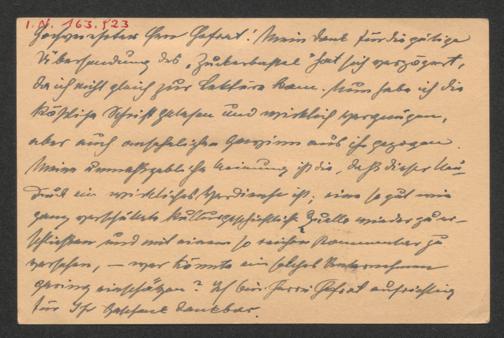 I.N. 163.523
Hochverehrter Herr Hofrat! Mein Dank für die gütige
Übersendung des „Zauberbassel" hat sich verzögert,
da ich nicht gleich zur Lektüre kam. Nun habe ich die
köstliche Schrift gelesen und wirklich Vergnügen,
aber auch ansehnlichen Gewinn aus ihr gezogen.
Meine unmaßgebliche Meinung ist die, daß dieser Neu-
druck ein wirkliches Verdienst ist; eine so gut wie
ganz verschüttete kulturgeschichtliche Quelle wieder zu er-
schließen und mit einem so reichen Kommentar zu
versehen, – wer könnte ein solches Unternehmen
gering einschätzen? Ich bin Herrn Hofrat aufrichtig
für Ihr Geschenk dankbar.